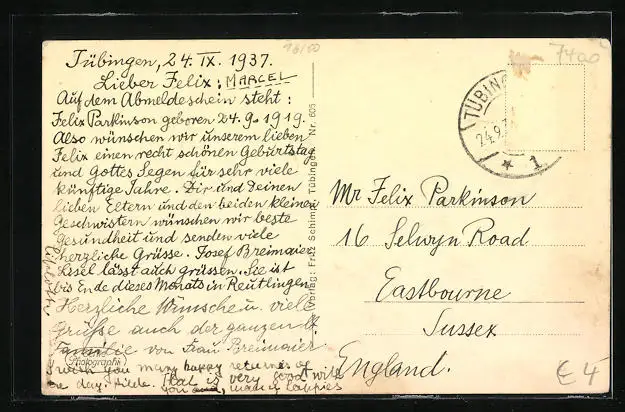 Tübingen, 24. IX. 1937.
Lieber Felix, MARCEL
Auf dem Abmeldeschein steht:
Felix Parkinson geboren 24.9.1919.
Also wünschen wir unserem lieben
Felix einen recht schönen Geburtstag
und Gottes Segen für sehr viele
künftige Jahre. Dir und Deinen
lieben Eltern und den beiden kleinen
Geschwistern wünschen wir beste
Gesundheit und senden viele
herzliche Grüsse. Josef Breimaier
Lisel lässt auch grüssen. Sie ist
bis Ende dieses Monats in Reutlingen
Herzliche Wünsche u. viele
Grüße auch der ganzen
Familie von Frau Breimaier
Photographie
I wish you many happy returns of
the day. Hilde. That is very good with
you and, many happies
Verlag: Schlimm, Tübingen. Nr. 605
TÜBIN
24.9.3
* 1
Mr Felix Parkinson
16 Selwyn Road
Eastbourne
Sussex
England.
7400
€ 4